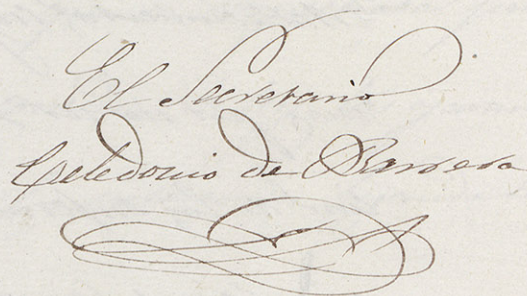 El Secretario
Celedonio de Barrera